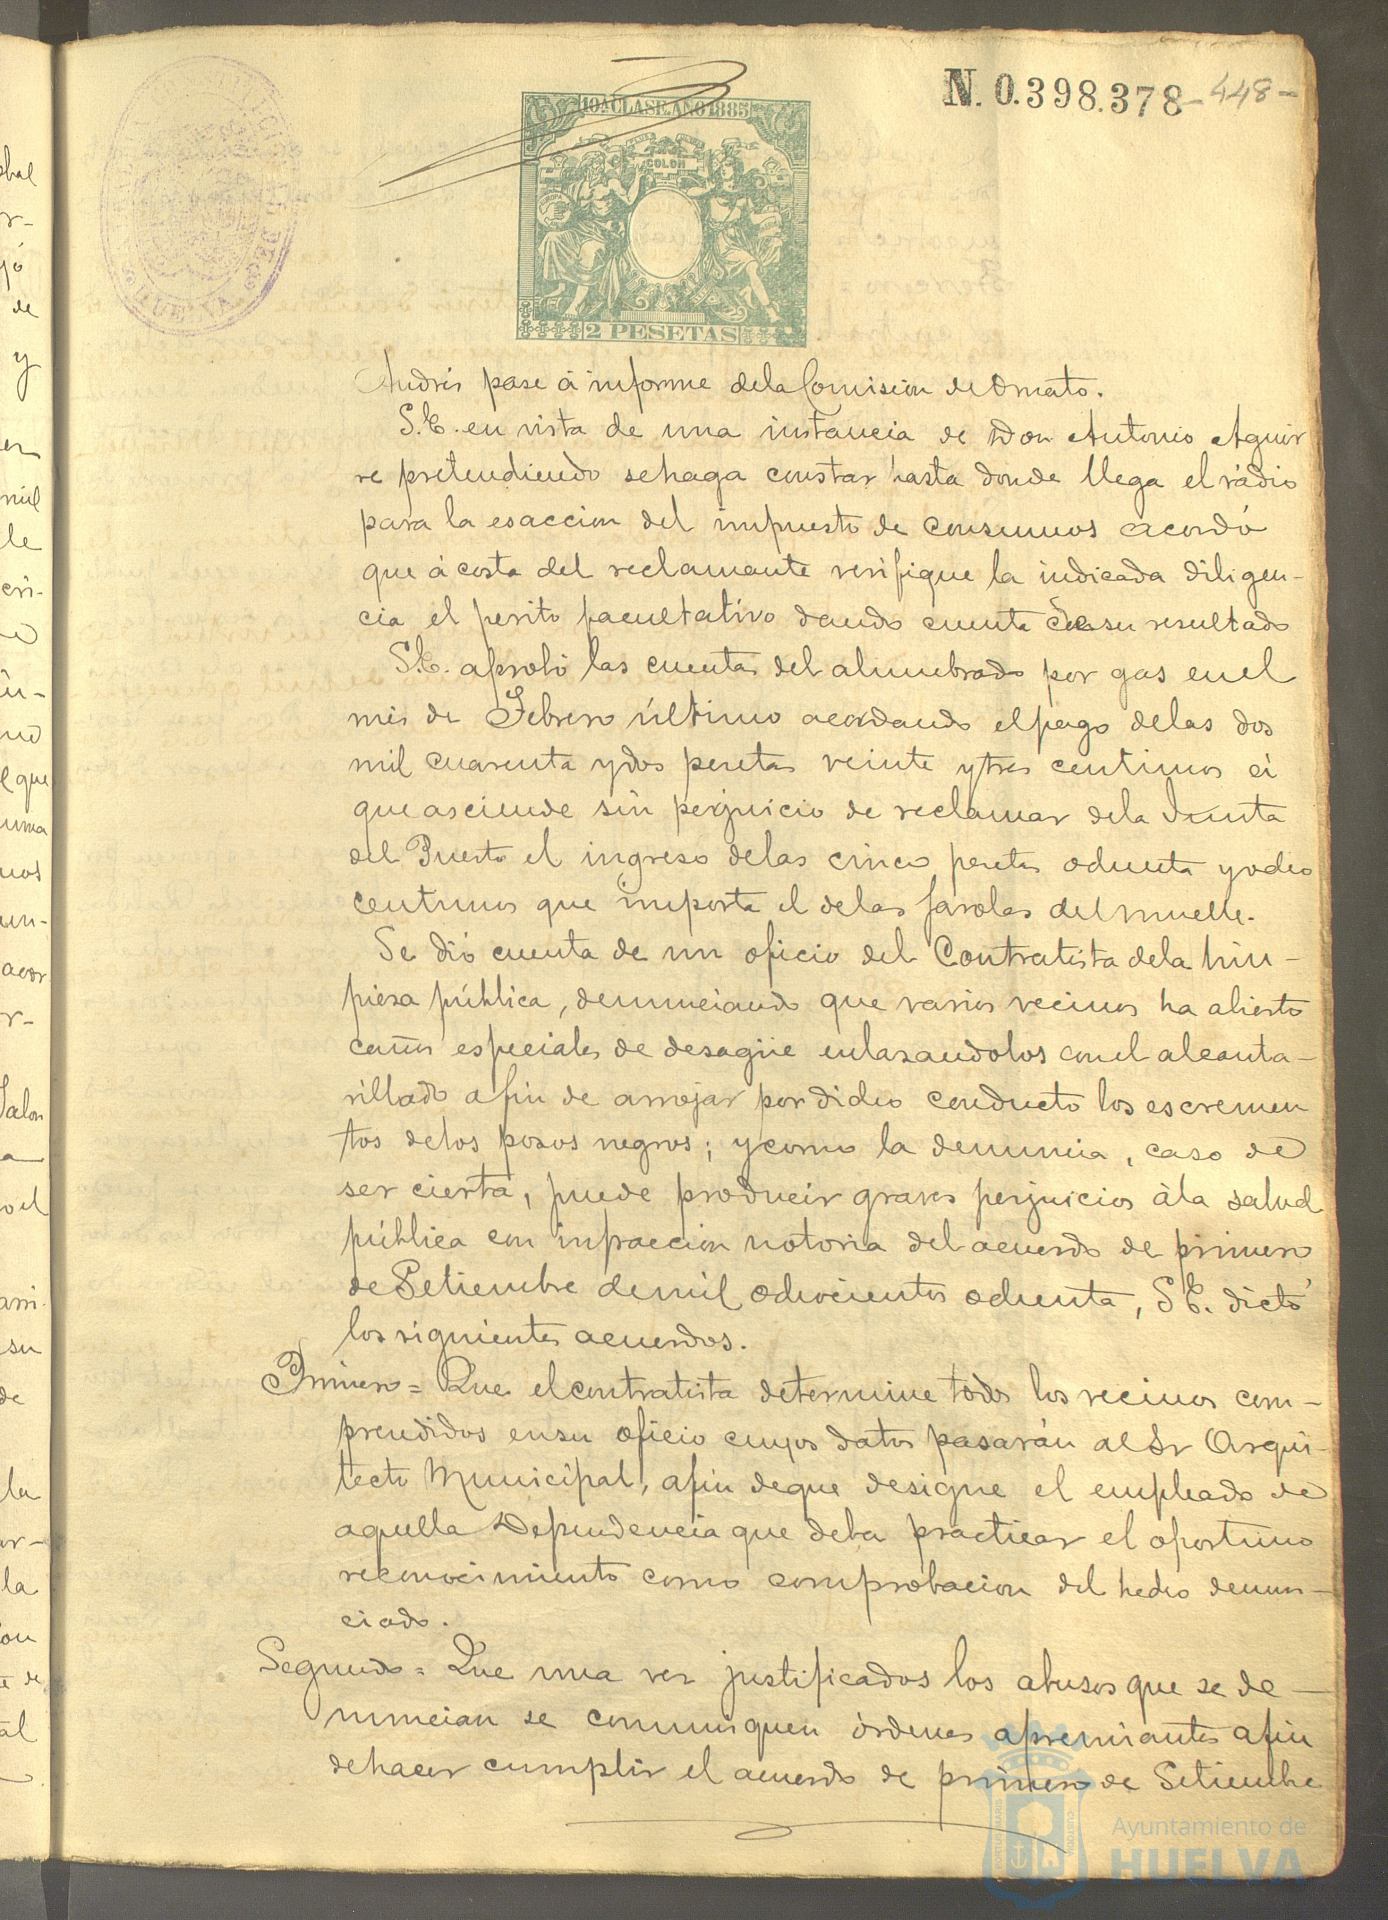 N. 0.398.378 -448-
10ª CLASE. AÑO 1885
COLON
EUROPA
2 PESETAS
HUELVA
Andrés pase á informe dela Comision de Ornato.
S.E. en vista de una instancia de Don Antonio Aguir
re pretendiendo sehaga constar hasta donde llega el rádio
para la esaccion del impuesto de consumos acordó
que á costa del reclamante verifique la indicada diligen-
cia el perito facultativo dando cuenta de su resultado
S.E. aprobó las cuentas del alumbrado por gas enel
mes de Febrero último acordando elpago delas dos
mil cuarenta ydos pesetas veinte ytres centimos á
que asciende sin perjuicio de reclamar dela Junta
del Puerto el ingreso delas cinco pesetas ochenta yocho
centimos que importa el delas farolas del muelle.
Se dió cuenta de un oficio del Contratista dela lim-
piesa pública, denunciando que varios vecinos ha abierto
caños especiales de desagüe enlasandolos conel alcanta-
rillado afin de arrojar por dicho conducto los escremen
tos delos posos negros; ycomo la denuncia, caso de
ser cierta, puede producir graves perjuicios ála salud
pública con infraccion notoria del acuerdo de primero
de Setiembre demil ochocientos ochenta, S.E. dictó
los siguientes acuerdos.
Primero = Que elcontratista determine todos los vecinos com-
prendidos ensu oficio cuyos datos pasarán al Sr Arqui-
tecto Municipal, afin deque designe el empleado de
aquella Dependencia que deba practicar el oportuno
reconocimiento como comprobacion del hecho denun-
ciado.
Segundo = Que una ves justificados los abusos que se de-
nuncian se comuniquen órdenes apremiantes afin
dehacer cumplir el acuerdo de primero de Setiembre
Ayuntamiento de
HUELVA